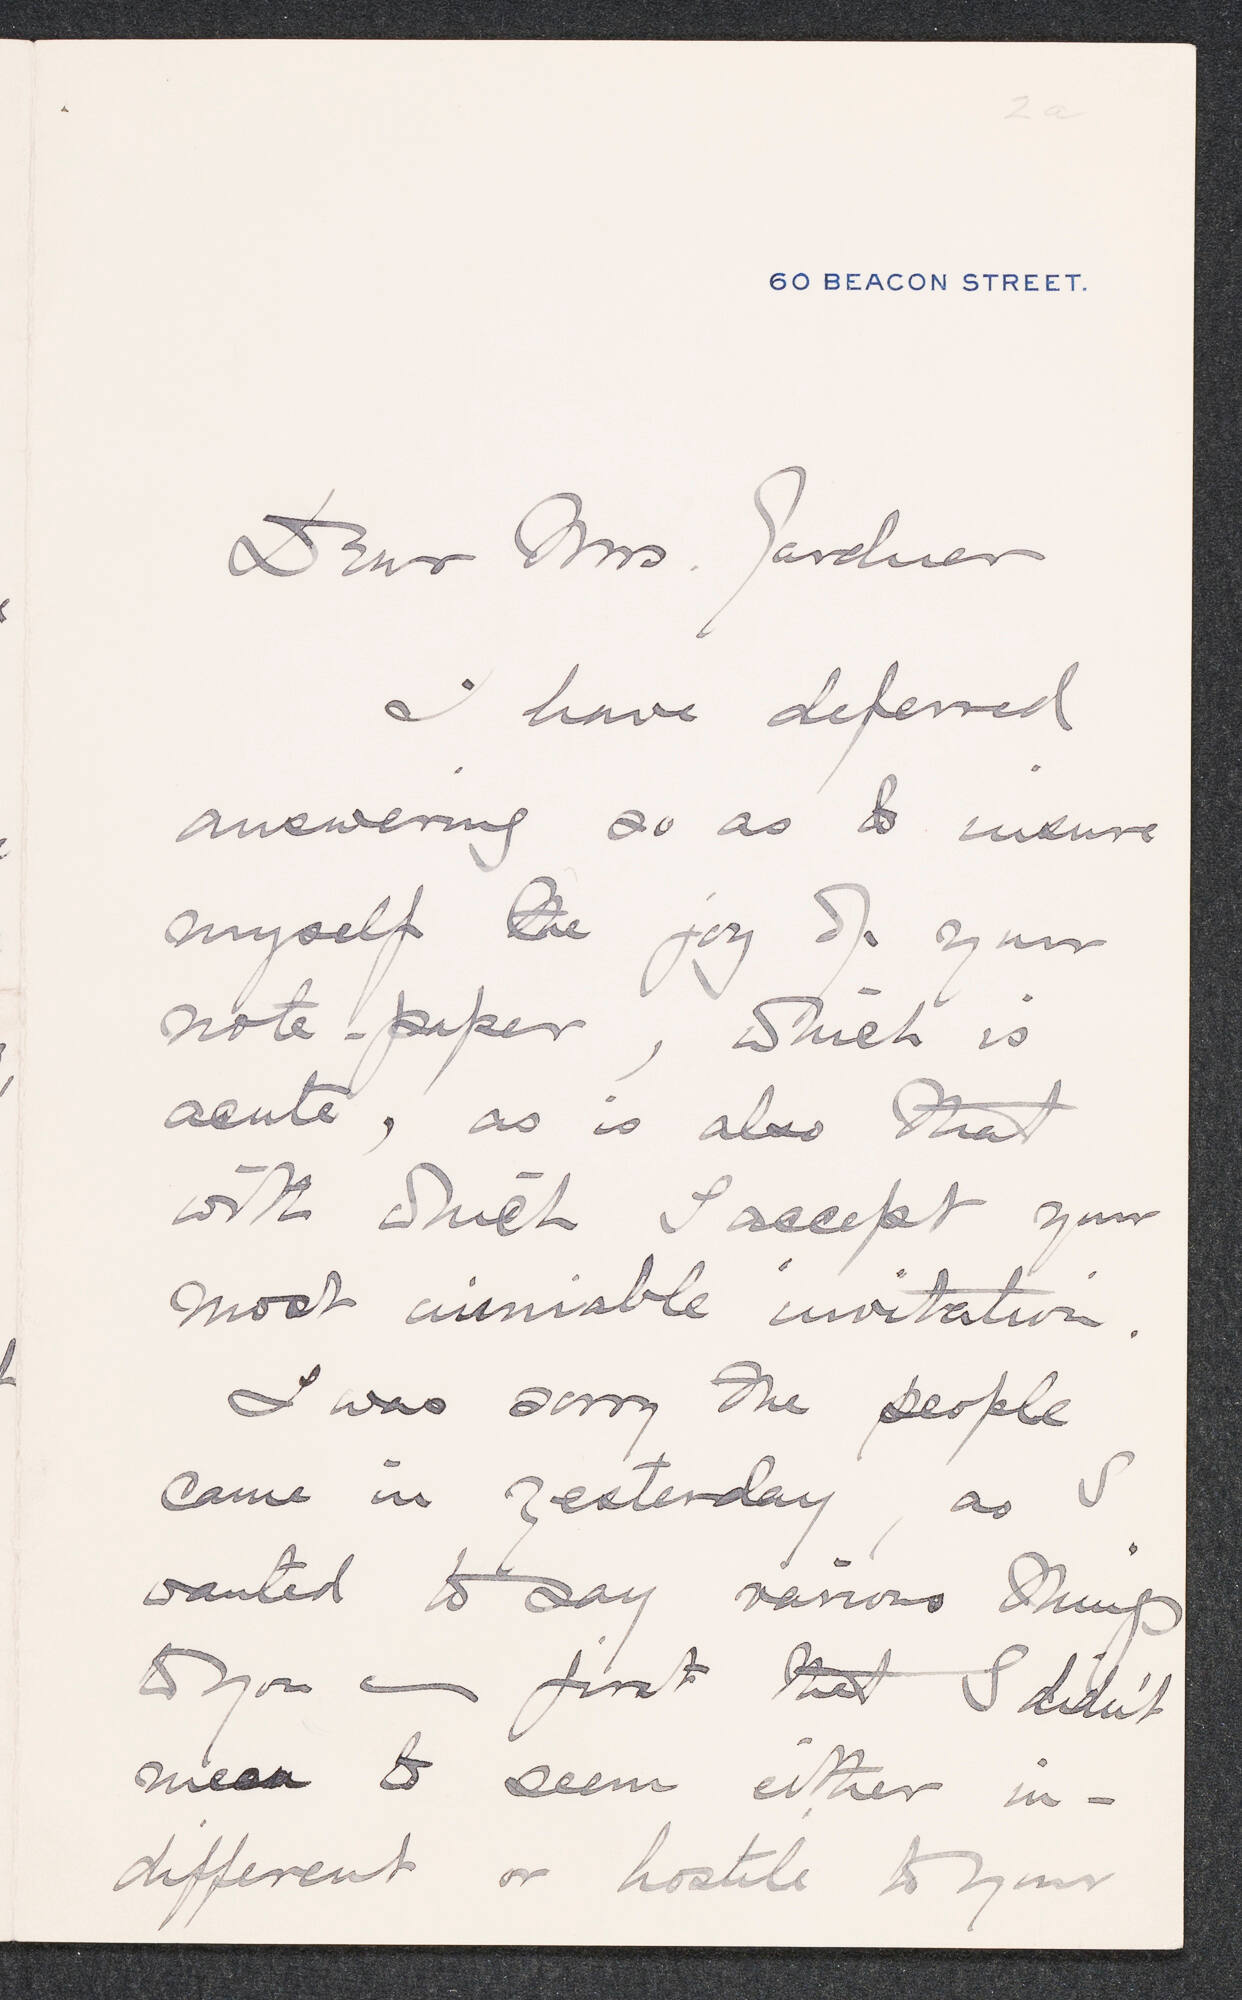 2a
60 BEACON STREET.
Dear Mrs. Gardner
I have deferred
answering so as to insure
myself the joy of your
note-paper, which is
acute, as is also that
with which I accept your
most amiable invitation.
I was sorry the people
came in yesterday, as I
wanted to say various things
to you — first that I didn't
mean to seem either in-
different or hostile to your